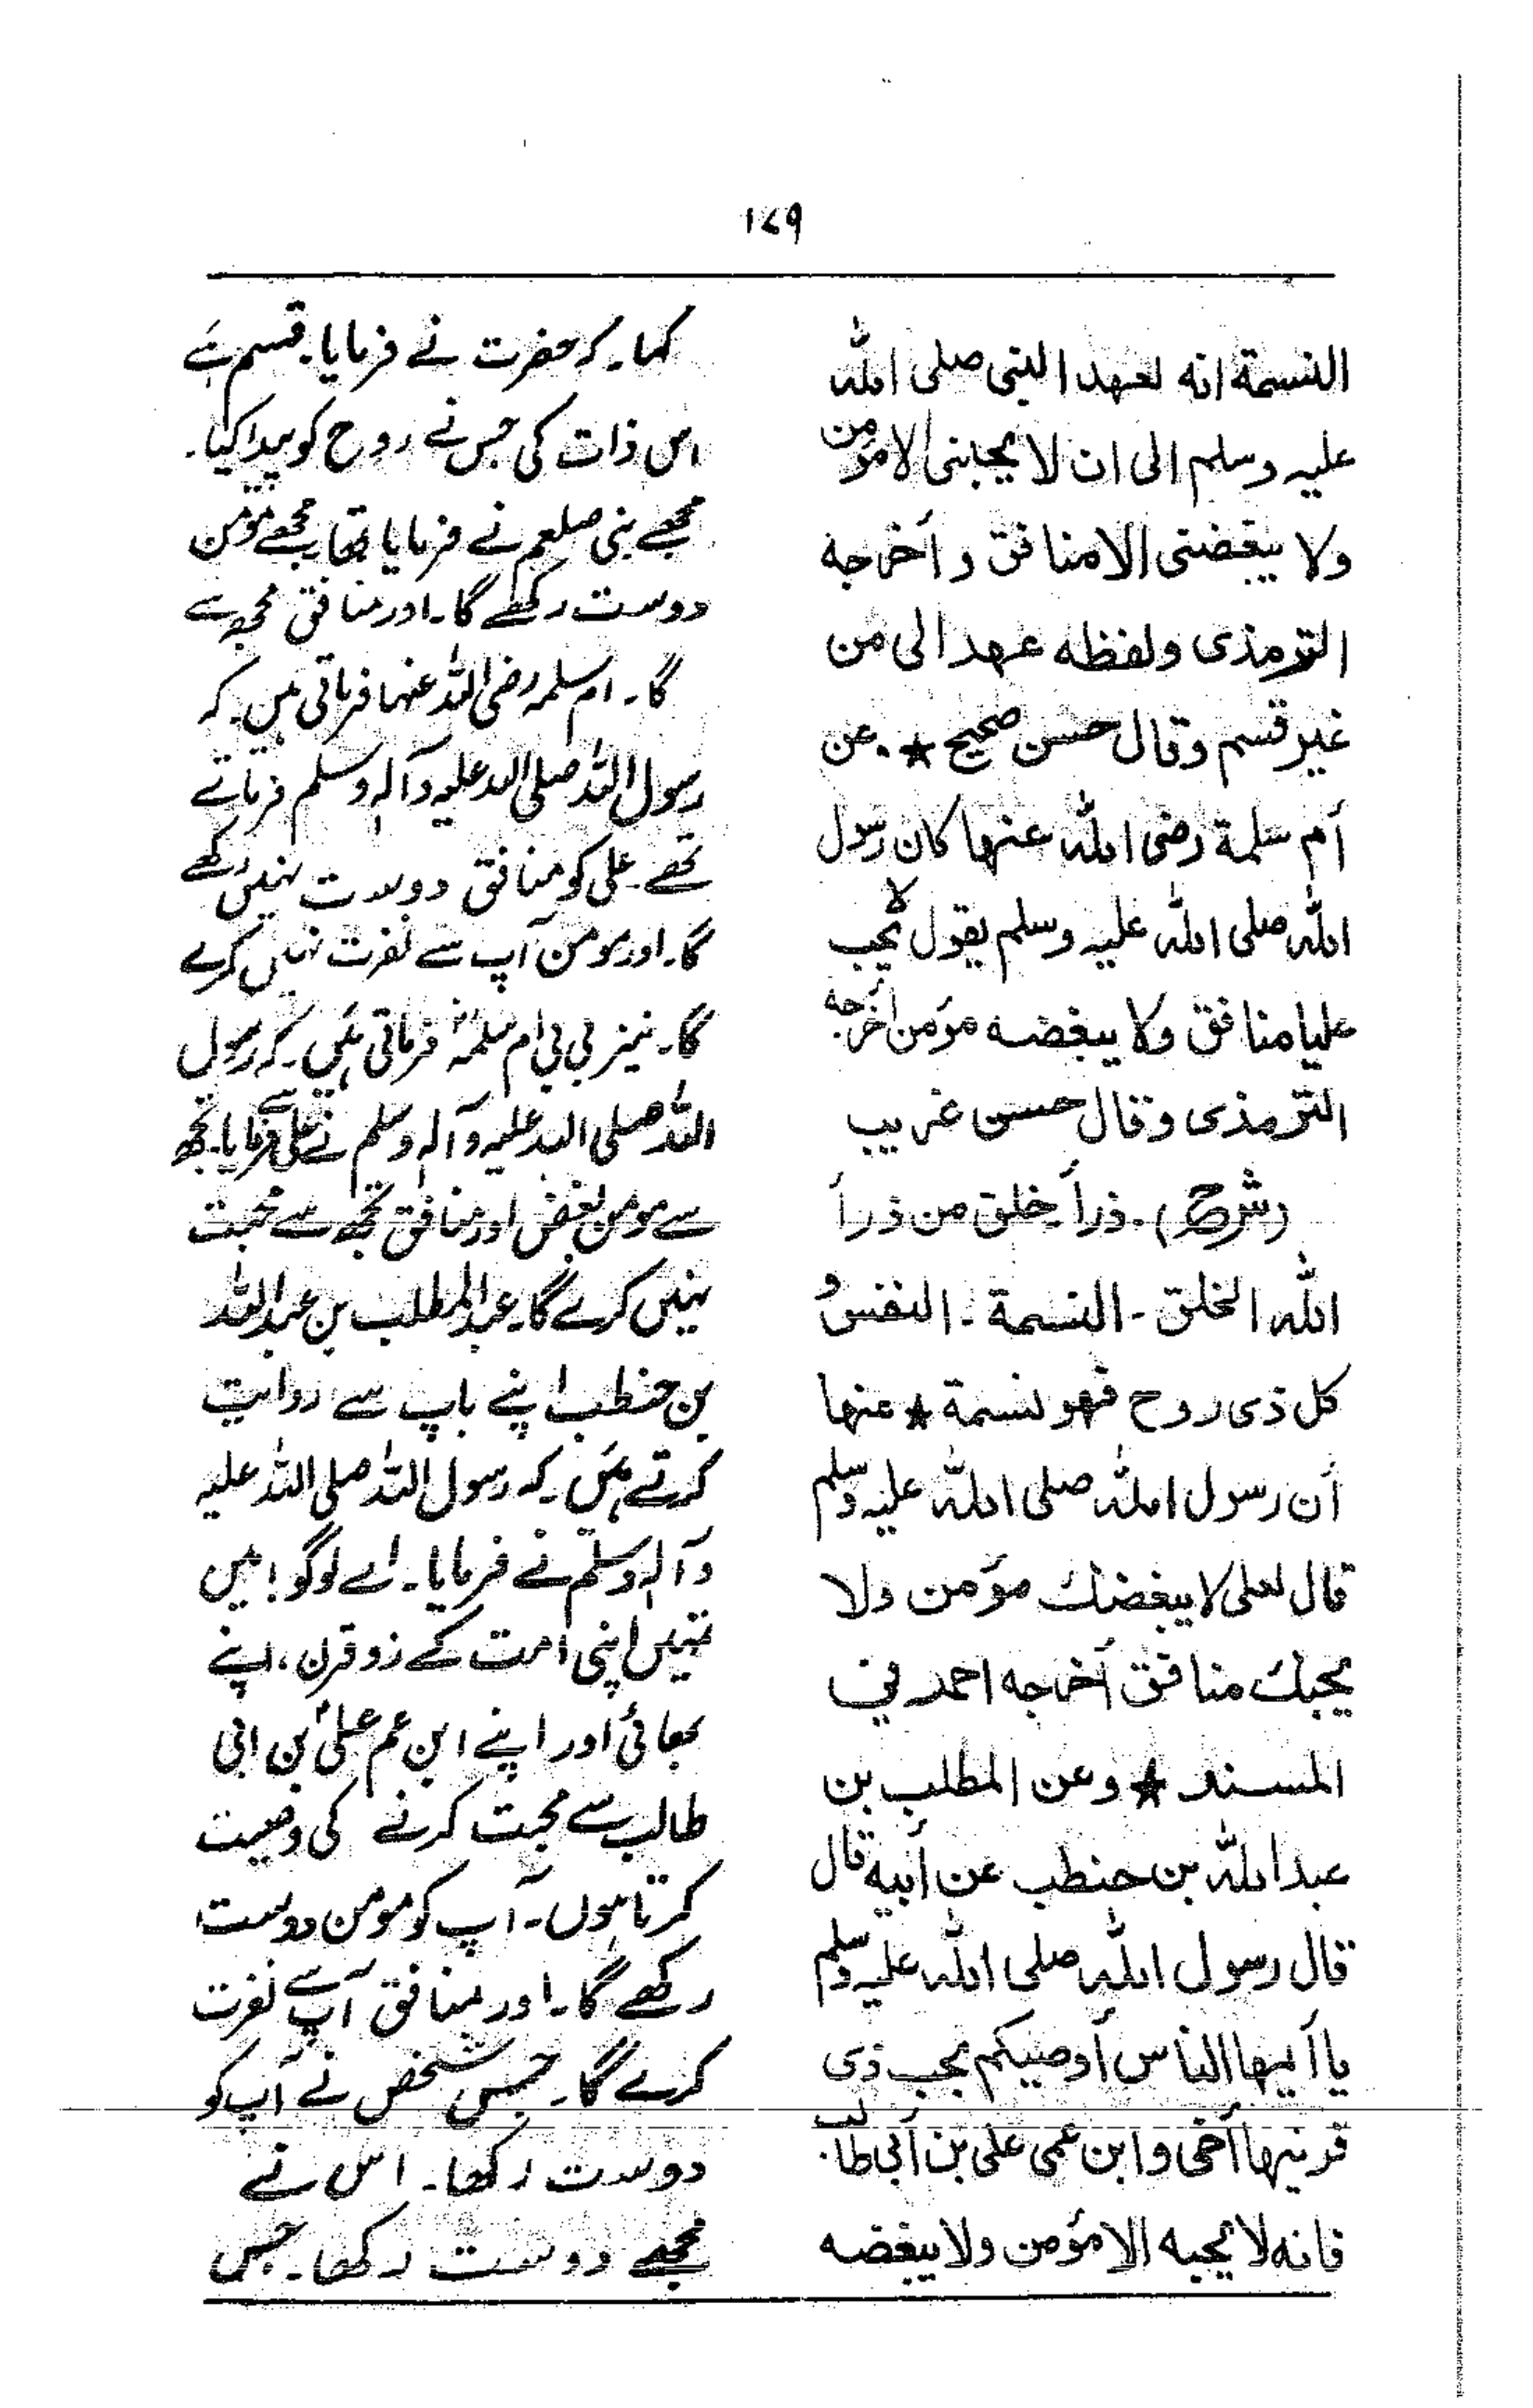 ۱۷۹
النسمة انه لعهد النبی صلی الله
علیه وسلم الی ان لا یحبنی الا مؤمن
ولا یبغضنی الا منافق و أخرجه
الترمذی ولفظه عهد الی من
غیر قسم وقال حسن صحیح ★ عن
أم سلمة رضی الله عنها کان رسول
الله صلی الله علیه وسلم یقول لا یحب
علیا منافق ولا یبغضه مؤمن أخرجه
الترمذی وقال حسن غریب
(شرح) ۔ ذرأ خلق من ذرأ
الله الخلق ۔ النسمة ۔ النفس و
کل ذی روح فهو نسمة ★ عنها
أن رسول الله صلی الله علیه وسلم
قال لعلی لا یبغضك مؤمن ولا
یحبك منافق أخرجه احمد فی
المسند ★ وعن المطلب بن
عبد الله بن حنطب عن أبیه قال
قال رسول الله صلی الله علیه وسلم
یا أیها الناس أوصیکم بحب ذی
قرنیها أخی وابن عمی علی بن أبی طالب
فانه لا یحبه الا مؤمن ولا یبغضه
کہا۔ کہ حضرت نے فرمایا۔ قسم ہے
اس ذات کی جس نے روح کو پیدا کیا۔
مجھے نبی صلعم نے فرمایا تھا۔ مجھے مؤمن
دوست رکھے گا۔ اور منافق مجھ سے
گا۔ ام سلمہ رضی اللہ عنہا فرماتی ہیں۔ کہ
رسول اللہ صلی اللہ علیہ وآلہٖ وسلم فرماتے
تھے۔ علی کو منافق دوست نہیں رکھے
گا۔ اور مومن آپ سے نفرت نہیں کرے
گا۔ نیز بی بی ام سلمہؓ فرماتی ہیں۔ کہ رسول
اللہ صلی اللہ علیہ وآلہٖ وسلم نے علی سے فرمایا۔ تجھ
سے مومن بغض اور منافق تجھ سے محبت
نہیں کرے گا۔ عبد المطلب بن عبد اللہ
بن حنطب اپنے باپ سے روایت
کرتے ہیں۔ کہ رسول اللہ صلی اللہ علیہ
وآلہٖ وسلم نے فرمایا۔ اے لوگو! میں
تمہیں اپنی امت کے ذو قرن، اپنے
بھائی اور اپنے ابن عم علیؑ بن ابی
طالب سے محبت کرنے کی وصیت
کرتا ہوں۔ آپ کو مومن دوست
رکھے گا۔ اور منافق آپ سے نفرت
کرے گا۔ جس شخص نے آپ کو
دوست رکھا۔ اس نے
مجھے دوست رکھا۔ جس